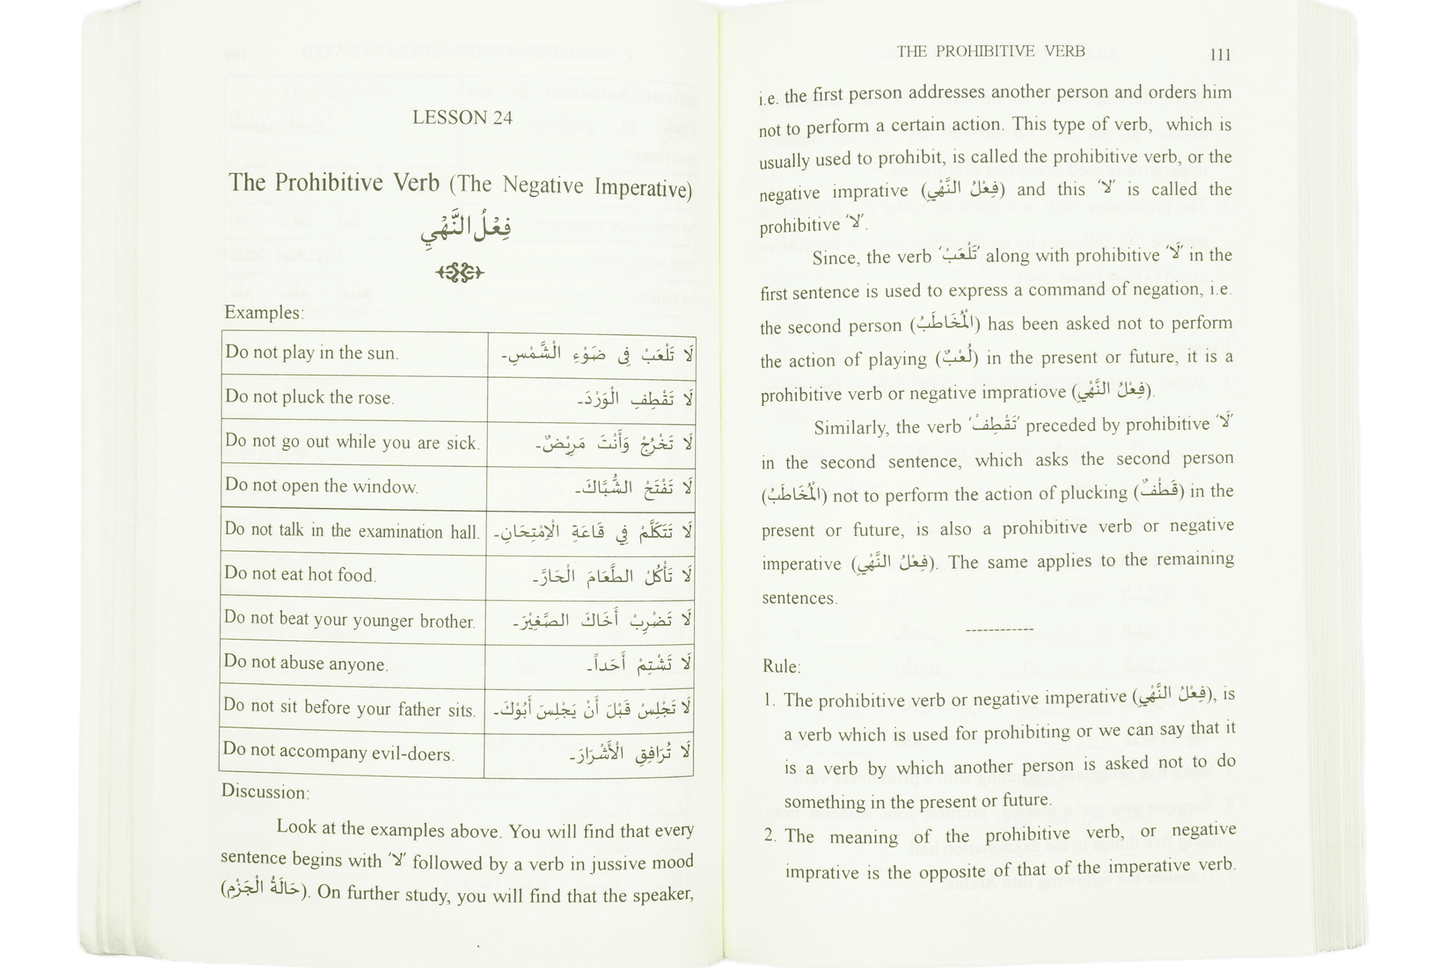 LESSON 24
The Prohibitive Verb (The Negative Imperative)
فِعْلُ النَّهْيِ
Examples:
Do not play in the sun. لَا تَلْعَبْ فِى ضَوْءِ الشَّمْسِ۔
Do not pluck the rose. لَا تَقْطِفِ الْوَرْدَ۔
Do not go out while you are sick. لَا تَخْرُجْ وَأَنْتَ مَرِيْضٌ۔
Do not open the window. لَا تَفْتَحْ الشُّبَّاكَ۔
Do not talk in the examination hall. لَا تَتَكَلَّمْ فِي قَاعَةِ الْاِمْتِحَانِ۔
Do not eat hot food. لَا تَأْكُلْ الطَّعَامَ الْحَارَّ۔
Do not beat your younger brother. لَا تَضْرِبْ أَخَاكَ الصَّغِيْرَ۔
Do not abuse anyone. لَا تَشْتِمْ أَحَداً۔
Do not sit before your father sits. لَا تَجْلِسْ قَبْلَ أَنْ يَجْلِسَ أَبُوْكَ۔
Do not accompany evil-doers. لَا تُرَافِقِ الْأَشْرَارَ۔
Discussion:
Look at the examples above. You will find that every
sentence begins with ‘لا’ followed by a verb in jussive mood
(حَالَةُ الْجَزْمِ). On further study, you will find that the speaker,
THE PROHIBITIVE VERB 111
i.e. the first person addresses another person and orders him
not to perform a certain action. This type of verb, which is
usually used to prohibit, is called the prohibitive verb, or the
negative imprative (فِعْلُ النَّهْيِ) and this ‘لا’ is called the
prohibitive ‘لا’.
Since, the verb ‘تَلْعَبْ’ along with prohibitive ‘لَا’ in the
first sentence is used to express a command of negation, i.e.
the second person (الْمُخَاطَبُ) has been asked not to perform
the action of playing (لُعْبٌ) in the present or future, it is a
prohibitive verb or negative impratiove (فِعْلُ النَّهْيِ).
Similarly, the verb ‘تَقْطِفْ’ preceded by prohibitive ‘لَا’
in the second sentence, which asks the second person
(الْمُخَاطَبُ) not to perform the action of plucking (قَطْفٌ) in the
present or future, is also a prohibitive verb or negative
imperative (فِعْلُ النَّهْيِ). The same applies to the remaining
sentences.
------------
Rule:
1. The prohibitive verb or negative imperative (فِعْلُ النَّهْيِ), is
a verb which is used for prohibiting or we can say that it
is a verb by which another person is asked not to do
something in the present or future.
2. The meaning of the prohibitive verb, or negative
imprative is the opposite of that of the imperative verb.